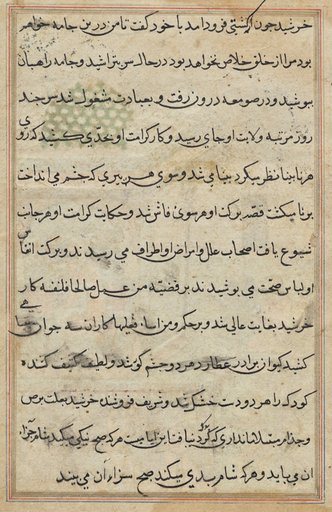 خرشید چون از کشتی فرود آمد با خود گفت تا من درین جامه خواهم
بود مرا از خلق خلاص نخواهد بود در حال سر بتراشید و جامه راهبان
بپوشید و در صومعه در رون رفت و بعبادت مشغول شد بس چند
روز مرتبه ولایت او بجای رسید و کار کرامت او بحدی کشید که روی
هر نابینا نظر میکرد بینا می شد و سوی هر پیری که چشم می انداخت
برنا میکشت قصه برکت او هر سوی فاش شد و حکایت کرامت او هر جانب
شیوع یافت اصحاب علل و امراض از اطراف می رسیدند و ببرکت انفاس
او لباس صحت می پوشیدند بر قضیه من عمل صالحا فلنفسه کار
خرشید بغایت عالی شد و بر حکم و من اسا فعلیها کار آن سه جوان
کنده یکی برادر عطار در هر دو چشم کور شد و لطیف کفن کننده
کور که را هر دو دست خشک شد و شریف فروشنده خرشید بعلت برص
و جذام مبتلا شد انداری که کرد دنیا فنا برایا بیت هر که صح نیکی میکند شام جزا
آن می یابد و هر که شام بدی میکند صبح سزاء آن می بیند